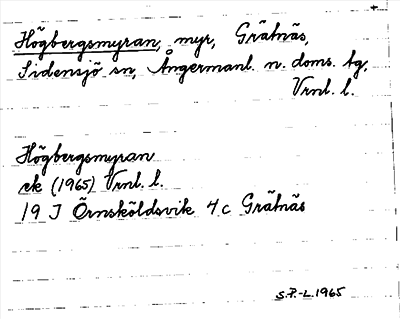 Högbergsmyran, myr, Grätnäs,
Sidensjö sn, Ångermanl. n. doms. tg,
Vrnl. l.
Högbergsmyran
ek (1965) Vrnl. l.
19 J Örnsköldsvik 4 c Grätnäs
S.P.-L. 1965